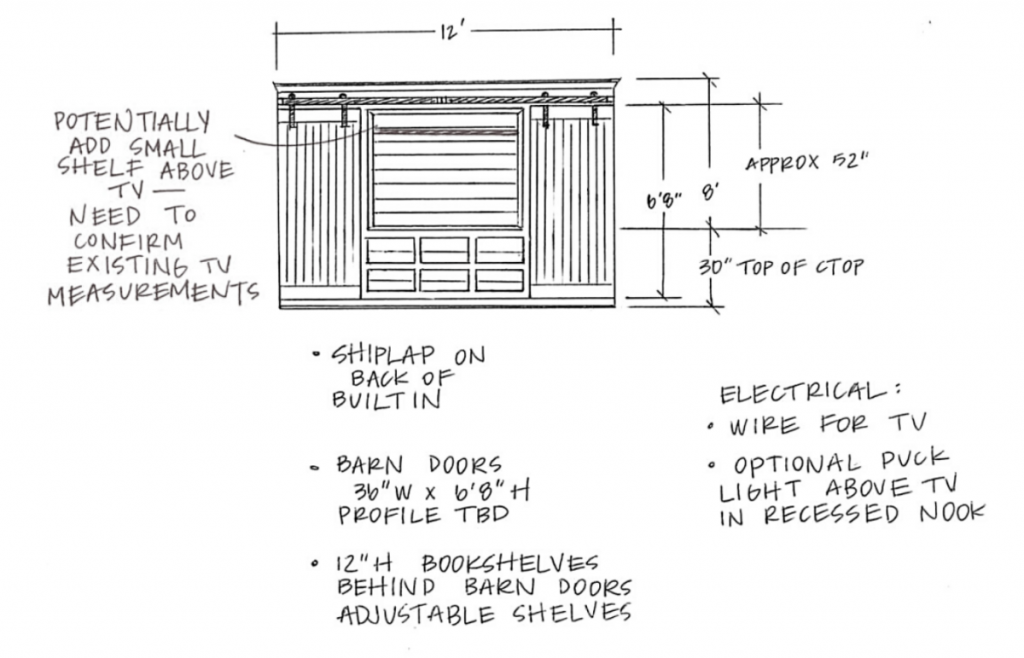 12'
POTENTIALLY
ADD SMALL
SHELF ABOVE
TV —
NEED TO
CONFIRM
EXISTING TV
MEASUREMENTS
APPROX 52"
6'8"
8'
30" TOP OF CTOP
• SHIPLAP ON
BACK OF
BUILT IN
• BARN DOORS
36"W x 6'8"H
PROFILE TBD
• 12"H BOOKSHELVES
BEHIND BARN DOORS
ADJUSTABLE SHELVES
ELECTRICAL:
• WIRE FOR TV
• OPTIONAL PUCK
LIGHT ABOVE TV
IN RECESSED NOOK